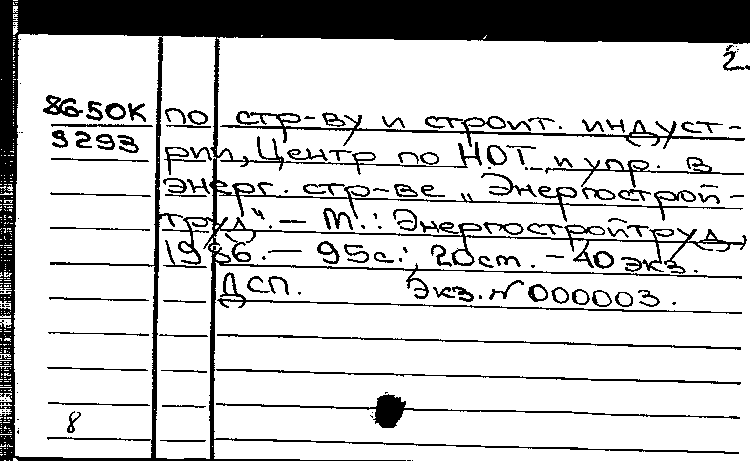 2.
86-50К по стр-ву и строит. индуст-
3293
рии, Центр по НОТ и упр. в
энерг. стр-ве „Энергострой-
труд“. — М.: Энергостройтруд,
1986. — 95с.; 20см. — 40 экз.
ДСП. Экз. № 000003.
8